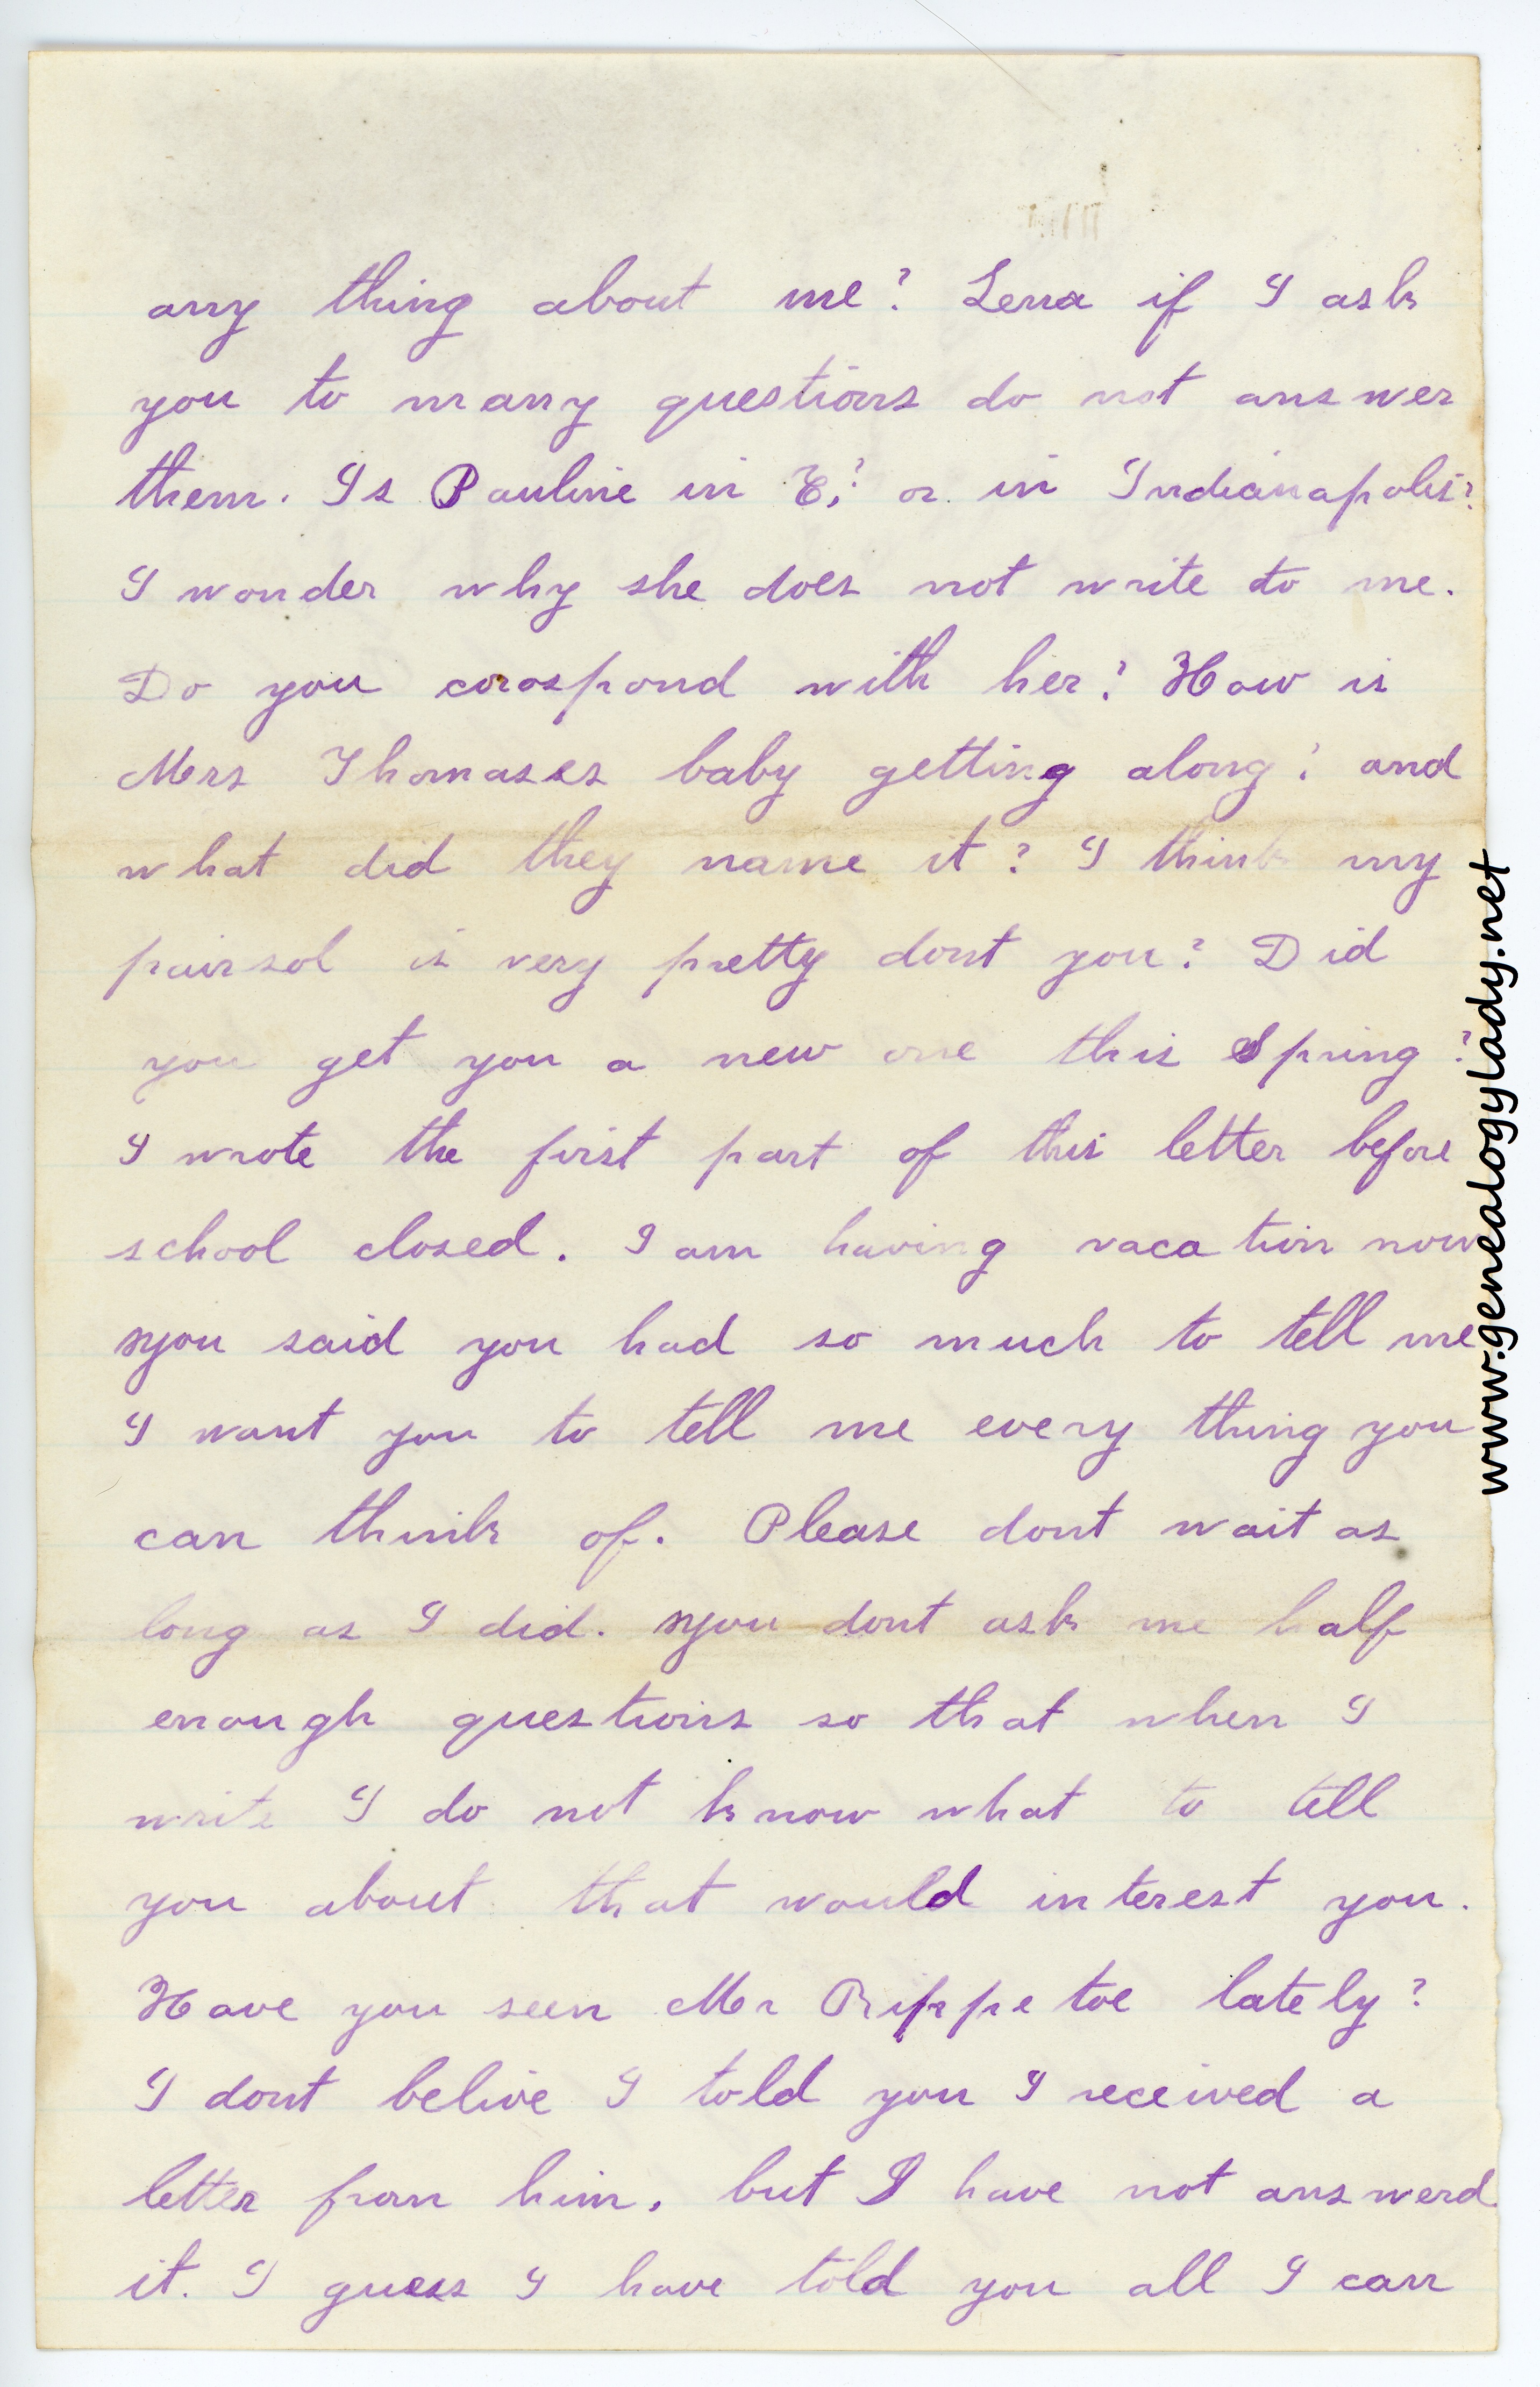 any thing about me? Lena if I ask
you to many questions do not answer
them. Is Pauline in E,? or in Indianapolis?
I wonder why she does not write to me.
Do you corospond with her? How is
Mrs Thomases baby getting along? and
what did they name it? I think my
pairsol is very pretty dont you? Did
you get you a new one this Spring?
I wrote the first part of this letter before
school closed. I am having vacation now
you said you had so much to tell me
I want you to tell me every thing you
can think of. Please dont wait as
long as I did. you dont ask me half
enough questions so that when I
write I do not know what to tell
you about that would interest you.
Have you seen Mr Rippetoe lately?
I dont belive I told you I received a
letter from him, but I have not answerd
it. I guess I have told you all I can
www.genealogylady.net